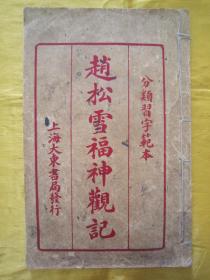 分類習字範本
趙松雪福神觀記
上海大東書局發行